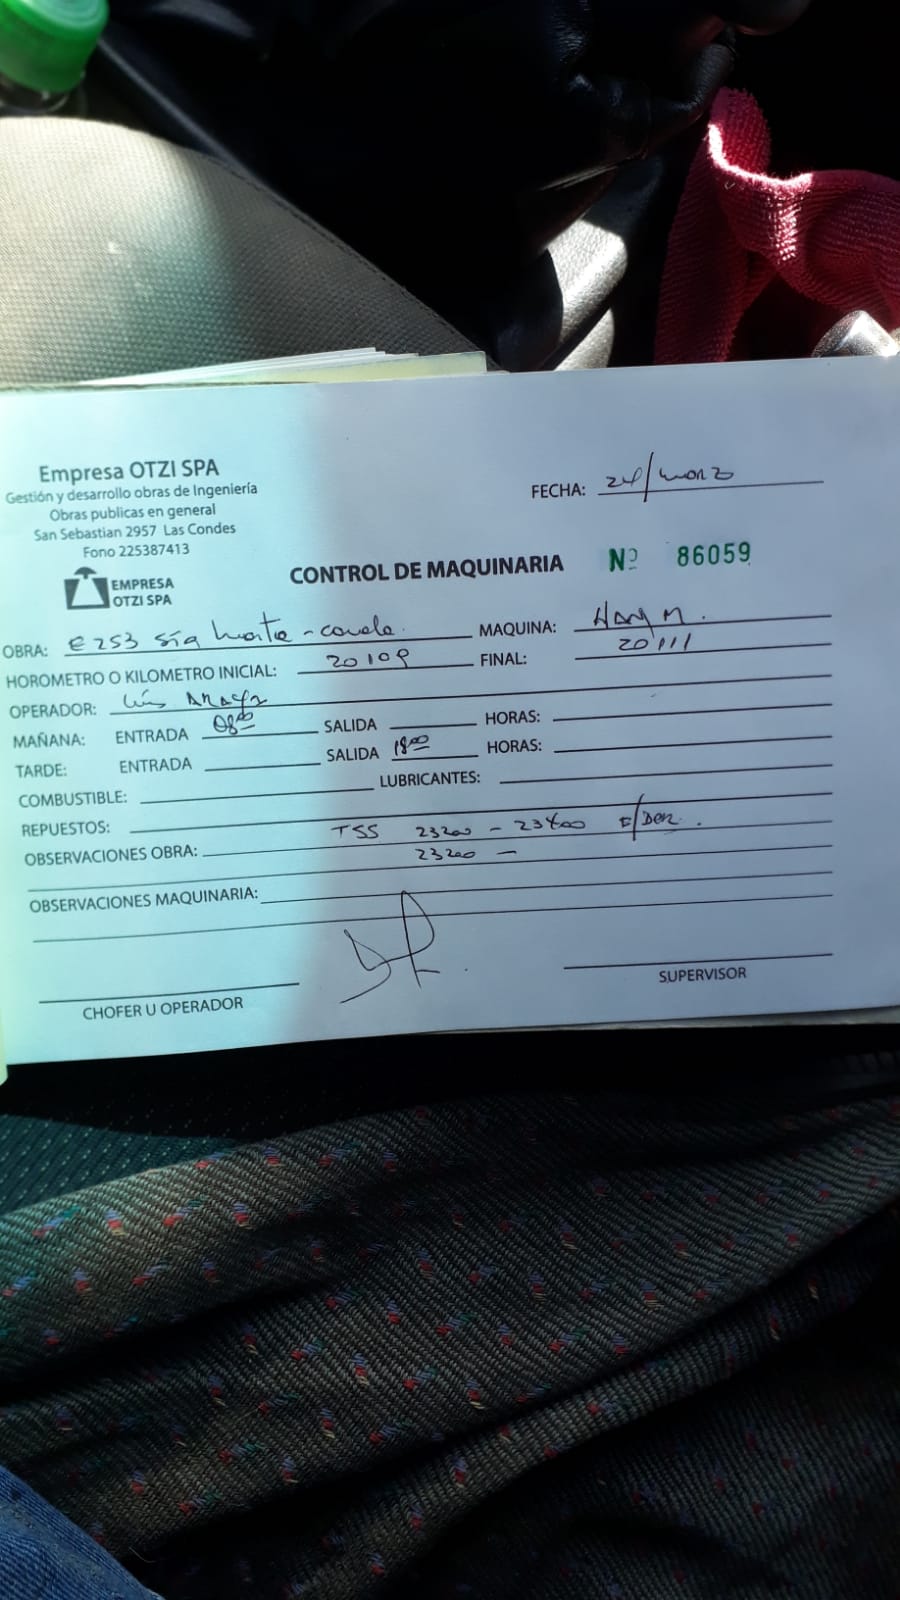 Empresa OTZI SPA
Gestión y desarrollo obras de Ingeniería
Obras publicas en general
San Sebastian 2957 Las Condes
Fono 225387413
EMPRESA
OTZI SPA
FECHA: 24/marzo
CONTROL DE MAQUINARIA Nº 86059
OBRA: E253 Sta Marta - MAQUINA: Ham M.
HOROMETRO O KILOMETRO INICIAL: 20109 FINAL: 20111
OPERADOR: Luis Araya
MAÑANA: ENTRADA 08:00 SALIDA HORAS:
TARDE: ENTRADA SALIDA 18:00 HORAS:
COMBUSTIBLE: LUBRICANTES:
REPUESTOS:
OBSERVACIONES OBRA: TSS 23200 - 23400 F/Der.
23200 -
OBSERVACIONES MAQUINARIA:
CHOFER U OPERADOR
SUPERVISOR